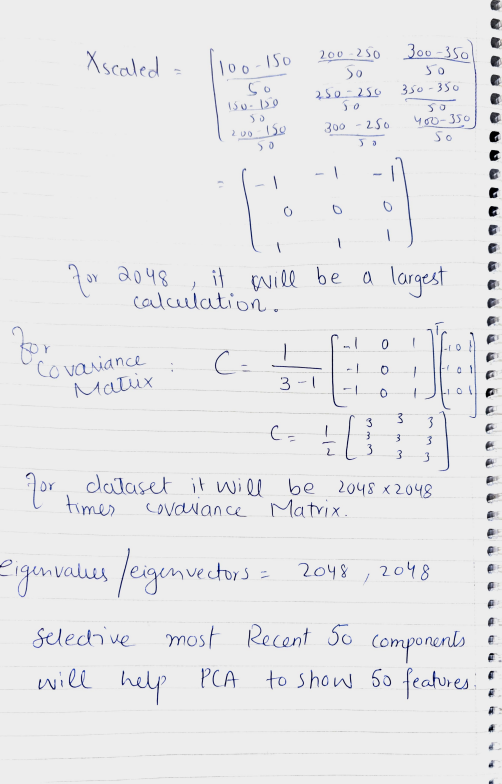 Xscaled = [ 100-150/50 200-250/50 300-350/50
150-150/50 250-250/50 350-350/50
200-150/50 300-250/50 400-350/50 ]
= [ -1 -1 -1
0 0 0
1 1 1 ]
For 2048 , it will be a largest
calculation.
For
Covariance
Matrix : C = 1/3-1 [ -1 0 1
-1 0 1
-1 0 1 ]^T [ -1 0 1
-1 0 1
-1 0 1 ]
C = 1/2 [ 3 3 3
3 3 3
3 3 3 ]
For dataset it will be 2048 x 2048
times covariance Matrix.
Eigenvalues / eigenvectors = 2048 , 2048
Selective most Recent 50 components
will help PCA to show 50 features.